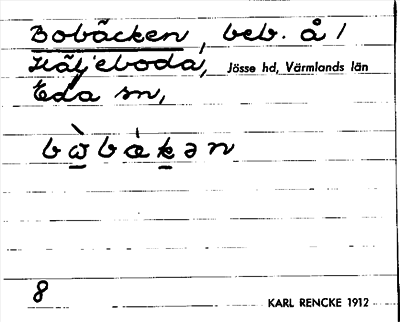 Bobäcken, beb. å /
Häljeboda, Jösse hd, Värmlands län
Eda sn,
bὼbὰkən
8
KARL RENCKE 1912